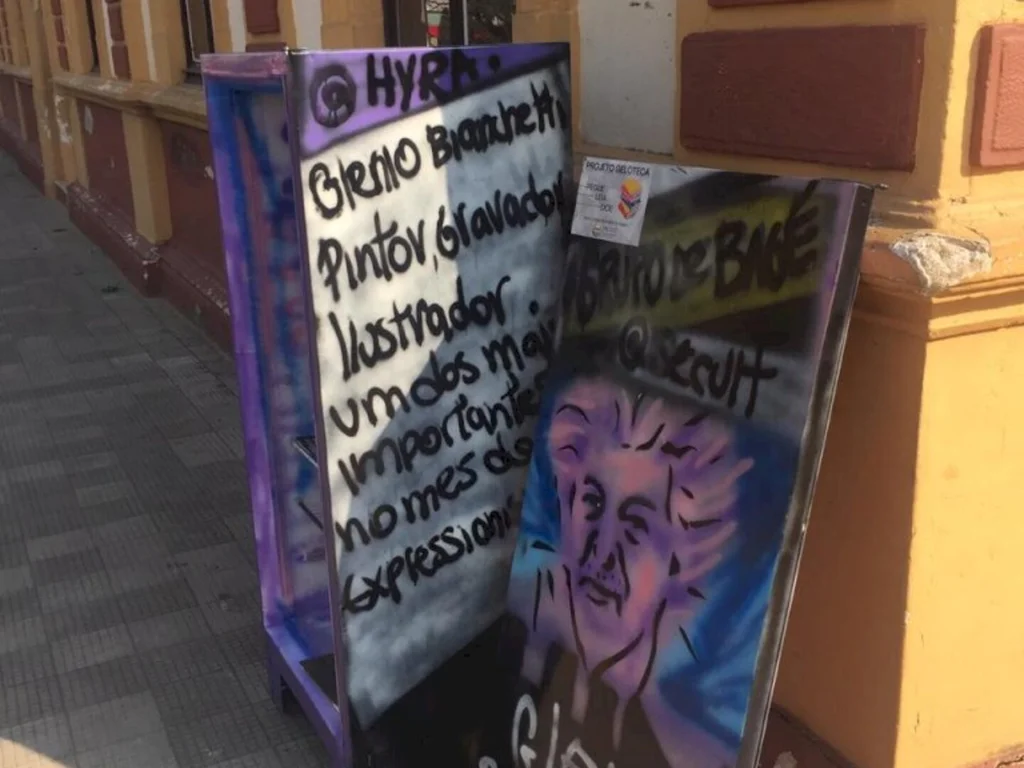 @HYRA.
Glenio Bianchetti
Pintor, Gravador
Ilustrador.
um dos mai
importantes
nomes do
Expressionis
PROJETO GELOTECA
PEGUE
LEIA
DOE
GRUPO de BAGÉ
@Secult